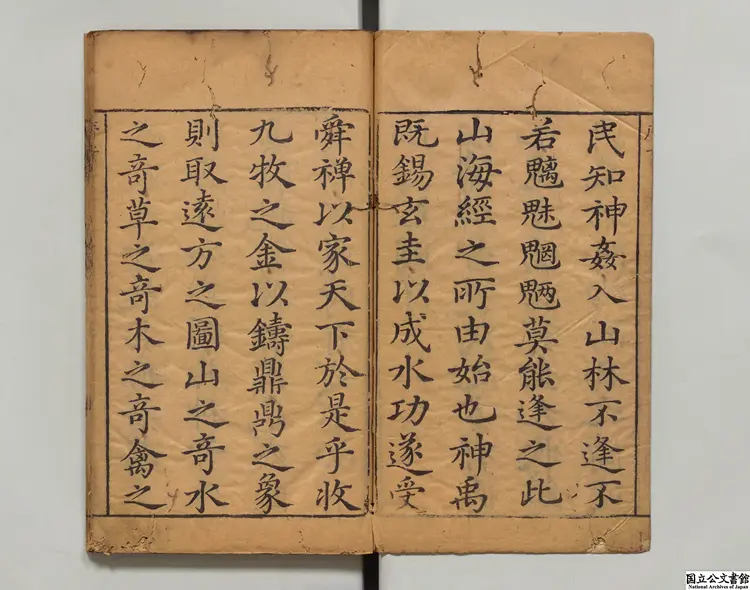 民知神姦入山林不逢不
若魑魅魍魎莫能逢之此
山海經之所由始也神禹
既錫玄圭以成水功遂受
舜禅以家天下於是乎收
九牧之金以鑄鼎鼎之象
則取遠方之圖山之奇水
之奇草之奇木之奇禽之
国立公文書館
National Archives of Japan